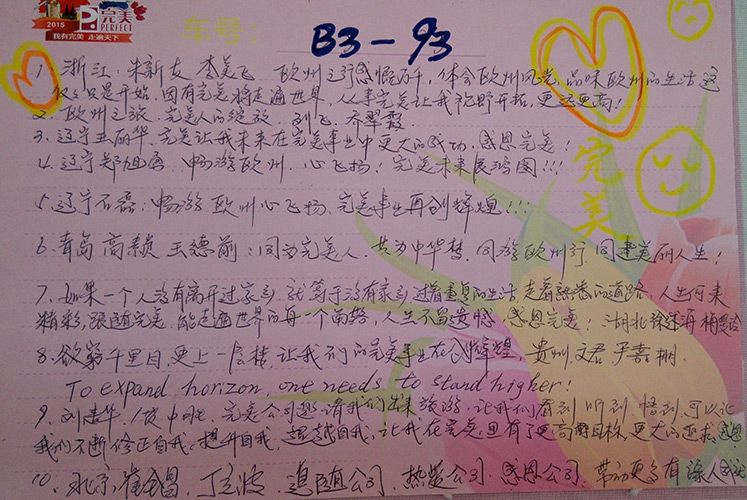 2015
完美
PERFECT
我有完美 走遍天下
车号:
B3-93
1、浙江: 朱新友 李美飞 欧州之行感慨万千, 体会欧州风光, 品味欧州的生活 这
仅仅只是开始, 因有完美将走遍世界, 从事完美让我视野开拓, 更远更高!
2、欧州之旅, 完美人的绽放 刘飞 齐翠霞
3、辽宁王丽华、完美让我未来在完美事业中更大的成功, 感恩完美!
4、辽宁郑旭 畅游欧州、心飞扬! 完美未来展鸿图!!!
5、辽宁石磊: 畅游欧州心飞扬、完美事业再创辉煌!!!
6、青岛 高颖 王德前: 同为完美人, 共为中华梦, 同游欧州行 同建美丽人生!
7、如果一个人没有离开过家乡, 就等于没有家乡 过着重复的生活, 走着熟悉的道路, 人生何来
精彩, 跟随完美, 能走遍世界的每一个角落, 人生不留遗憾 感恩完美! 湖北
8、欲穷千里目, 更上一层楼, 让我们的完美事业在创辉煌, 贵州, 文君 尹喜
To expand horizon, one needs to stand higher!
9、刘建华、 完美公司邀请我们出来旅游、让我们看到 听到 悟到 可以让
我们不断修正自我, 提升自我, 超越自我, 让我在完美里有了更高的目标, 更大的
10、北京, 丁立波 追随公司、热爱公司、感恩公司、带动更多有缘人
完美